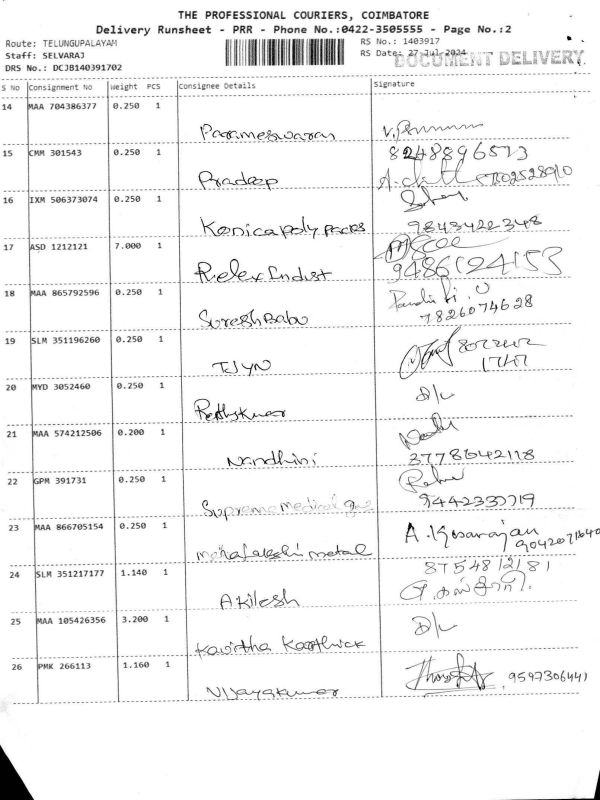 THE PROFESSIONAL COURIERS, COIMBATORE
Delivery Runsheet - PRR - Phone No.:0422-3505555 - Page No.:2
Route: TELUNGUPALAYAM
RS No.: 1403917
Staff: SELVARAJ
RS Date: 27 Jul 2024
DOCUMENT DELIVERY
DRS No.: DCJB140391702
S No Consignment No Weight PCS Consignee Details Signature
14 MAA 704386377 0.250 1
Parameswaran
15 CMM 301543 0.250 1
8248896573
Pradeep
16 IXM 506373074 0.250 1
Konica poly packs 9843422348
17 ASD 1212121 7.000 1
Relex Indust 9486124153
18 MAA 865792596 0.250 1
Suresh Babu 7826074628
19 SLM 351196260 0.250 1
TJYN
20 MYD 3052460 0.250 1
D/L
21 MAA 574212506 0.200 1
Nandhini 3778642118
22 GPM 391731 0.250 1
Supreme medical gas
23 MAA 866705154 0.250 1
metal
24 SLM 351217177 1.140 1
8754812181
Akilesh
25 MAA 105426356 3.200 1
D/L
Kavitha Karthick
26 PMK 266113 1.160 1
9597306441
Vijayakumar